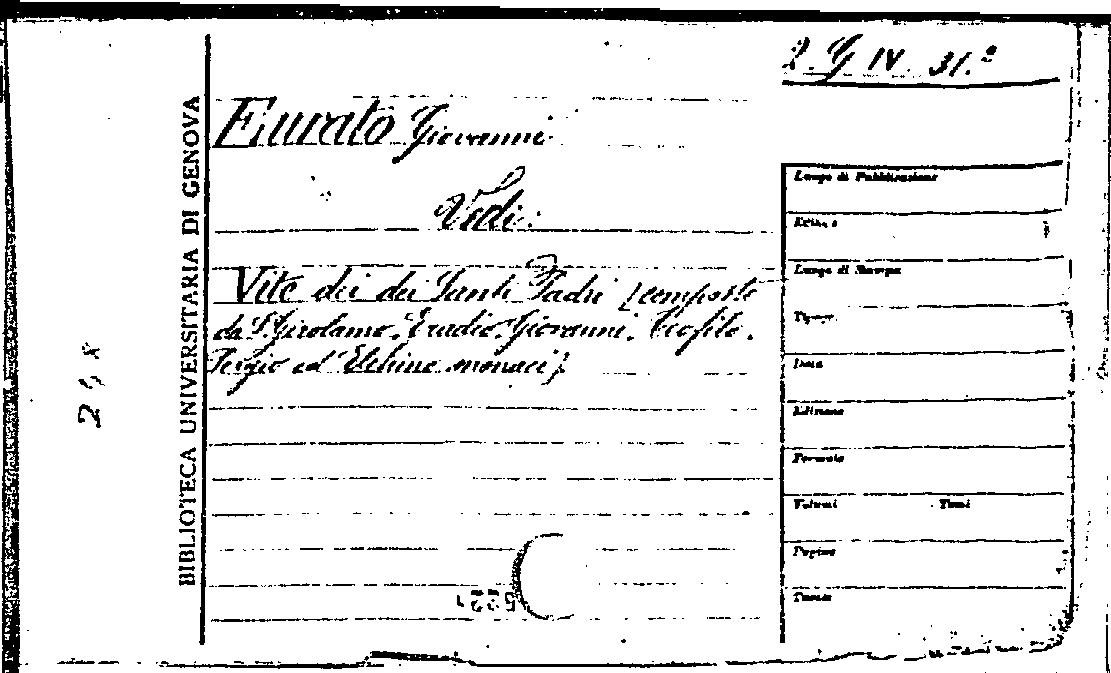 2. G IV. 31.²
Eurato Giovanni
Vedi:
Vite dei dei Santi Padri [composte
da S. Girolamo, Eradio, Giovanni, Teofilo,
Sergio ed Elchino monaci]
BIBLIOTECA UNIVERSITARIA DI GENOVA
298
Luogo di Pubblicazione
Editore
Luogo di Stampa
Tipogr.
Data
Edizione
Formato
Volumi Tomi
Pagine
Tavole